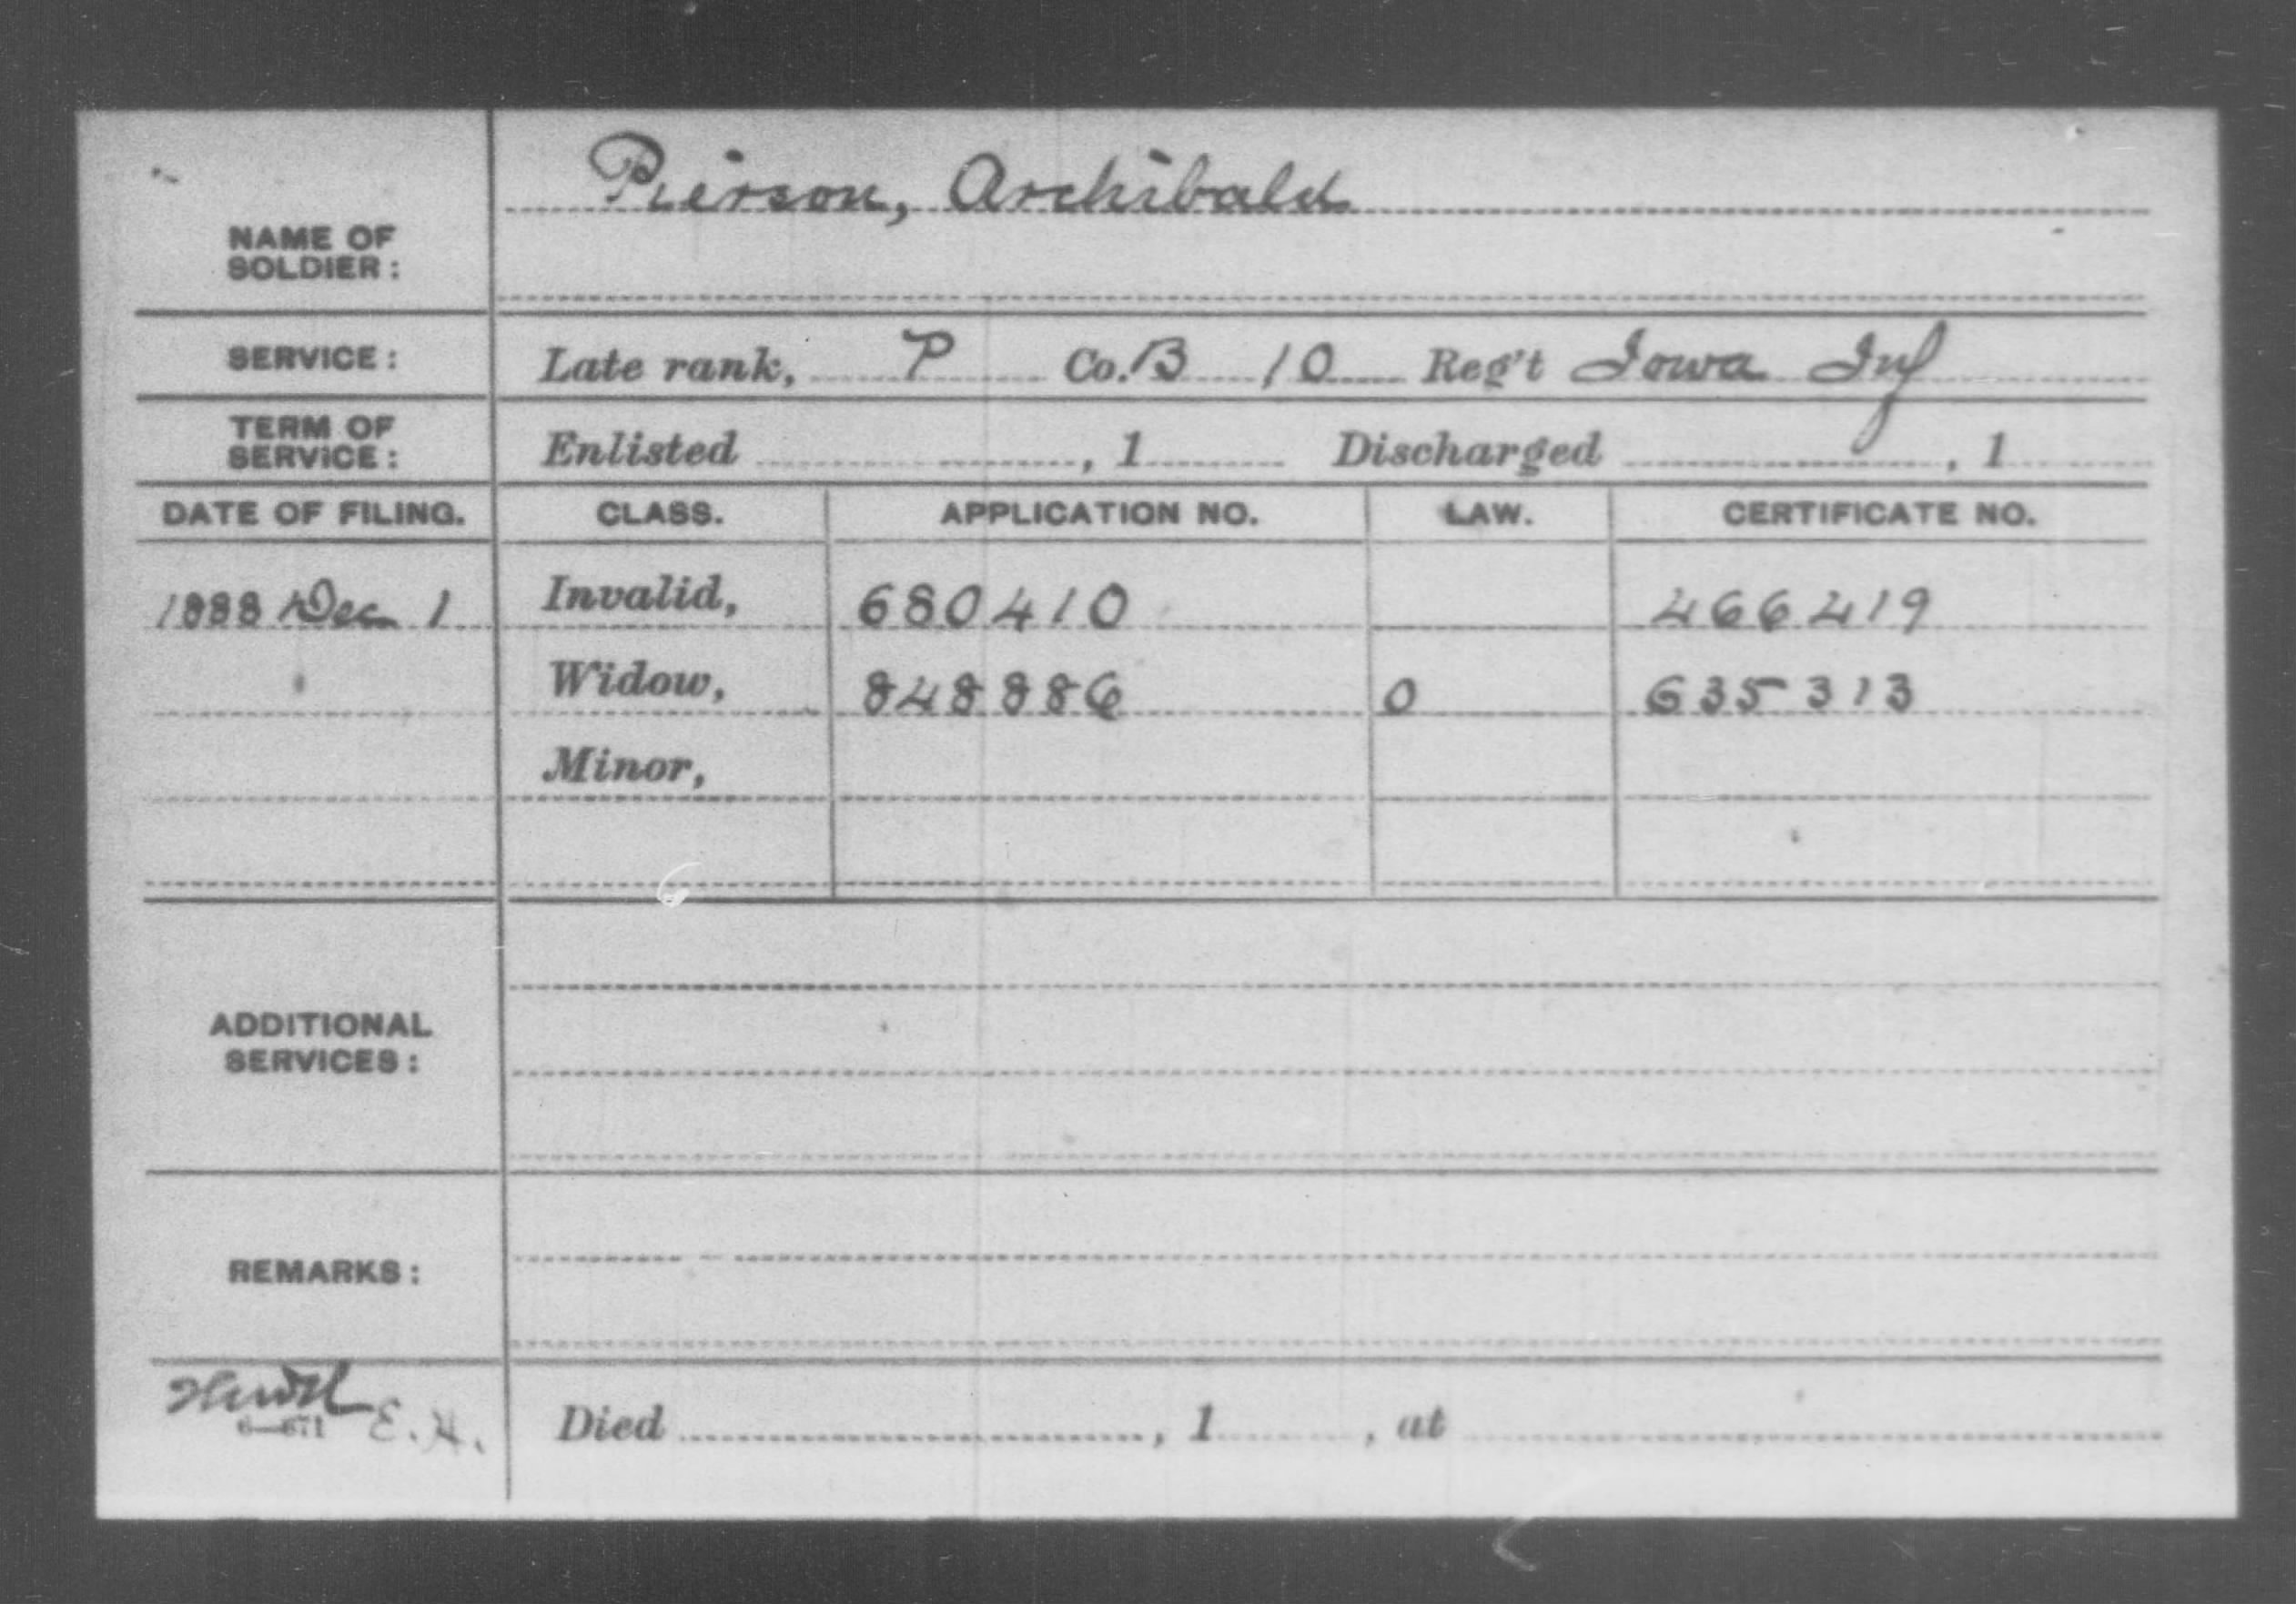 Pierson, Archibald
NAME OF
SOLDIER:
SERVICE: Late rank, P Co. B 10 Reg't Iowa Inf
TERM OF
SERVICE: Enlisted , 1 Discharged , 1
DATE OF FILING. CLASS. APPLICATION NO. LAW. CERTIFICATE NO.
1888 Dec 1 Invalid, 680410 466419
Widow, 848886 O 635313
Minor,
6
ADDITIONAL
SERVICES:
REMARKS:
E.H. Died , 1 , at